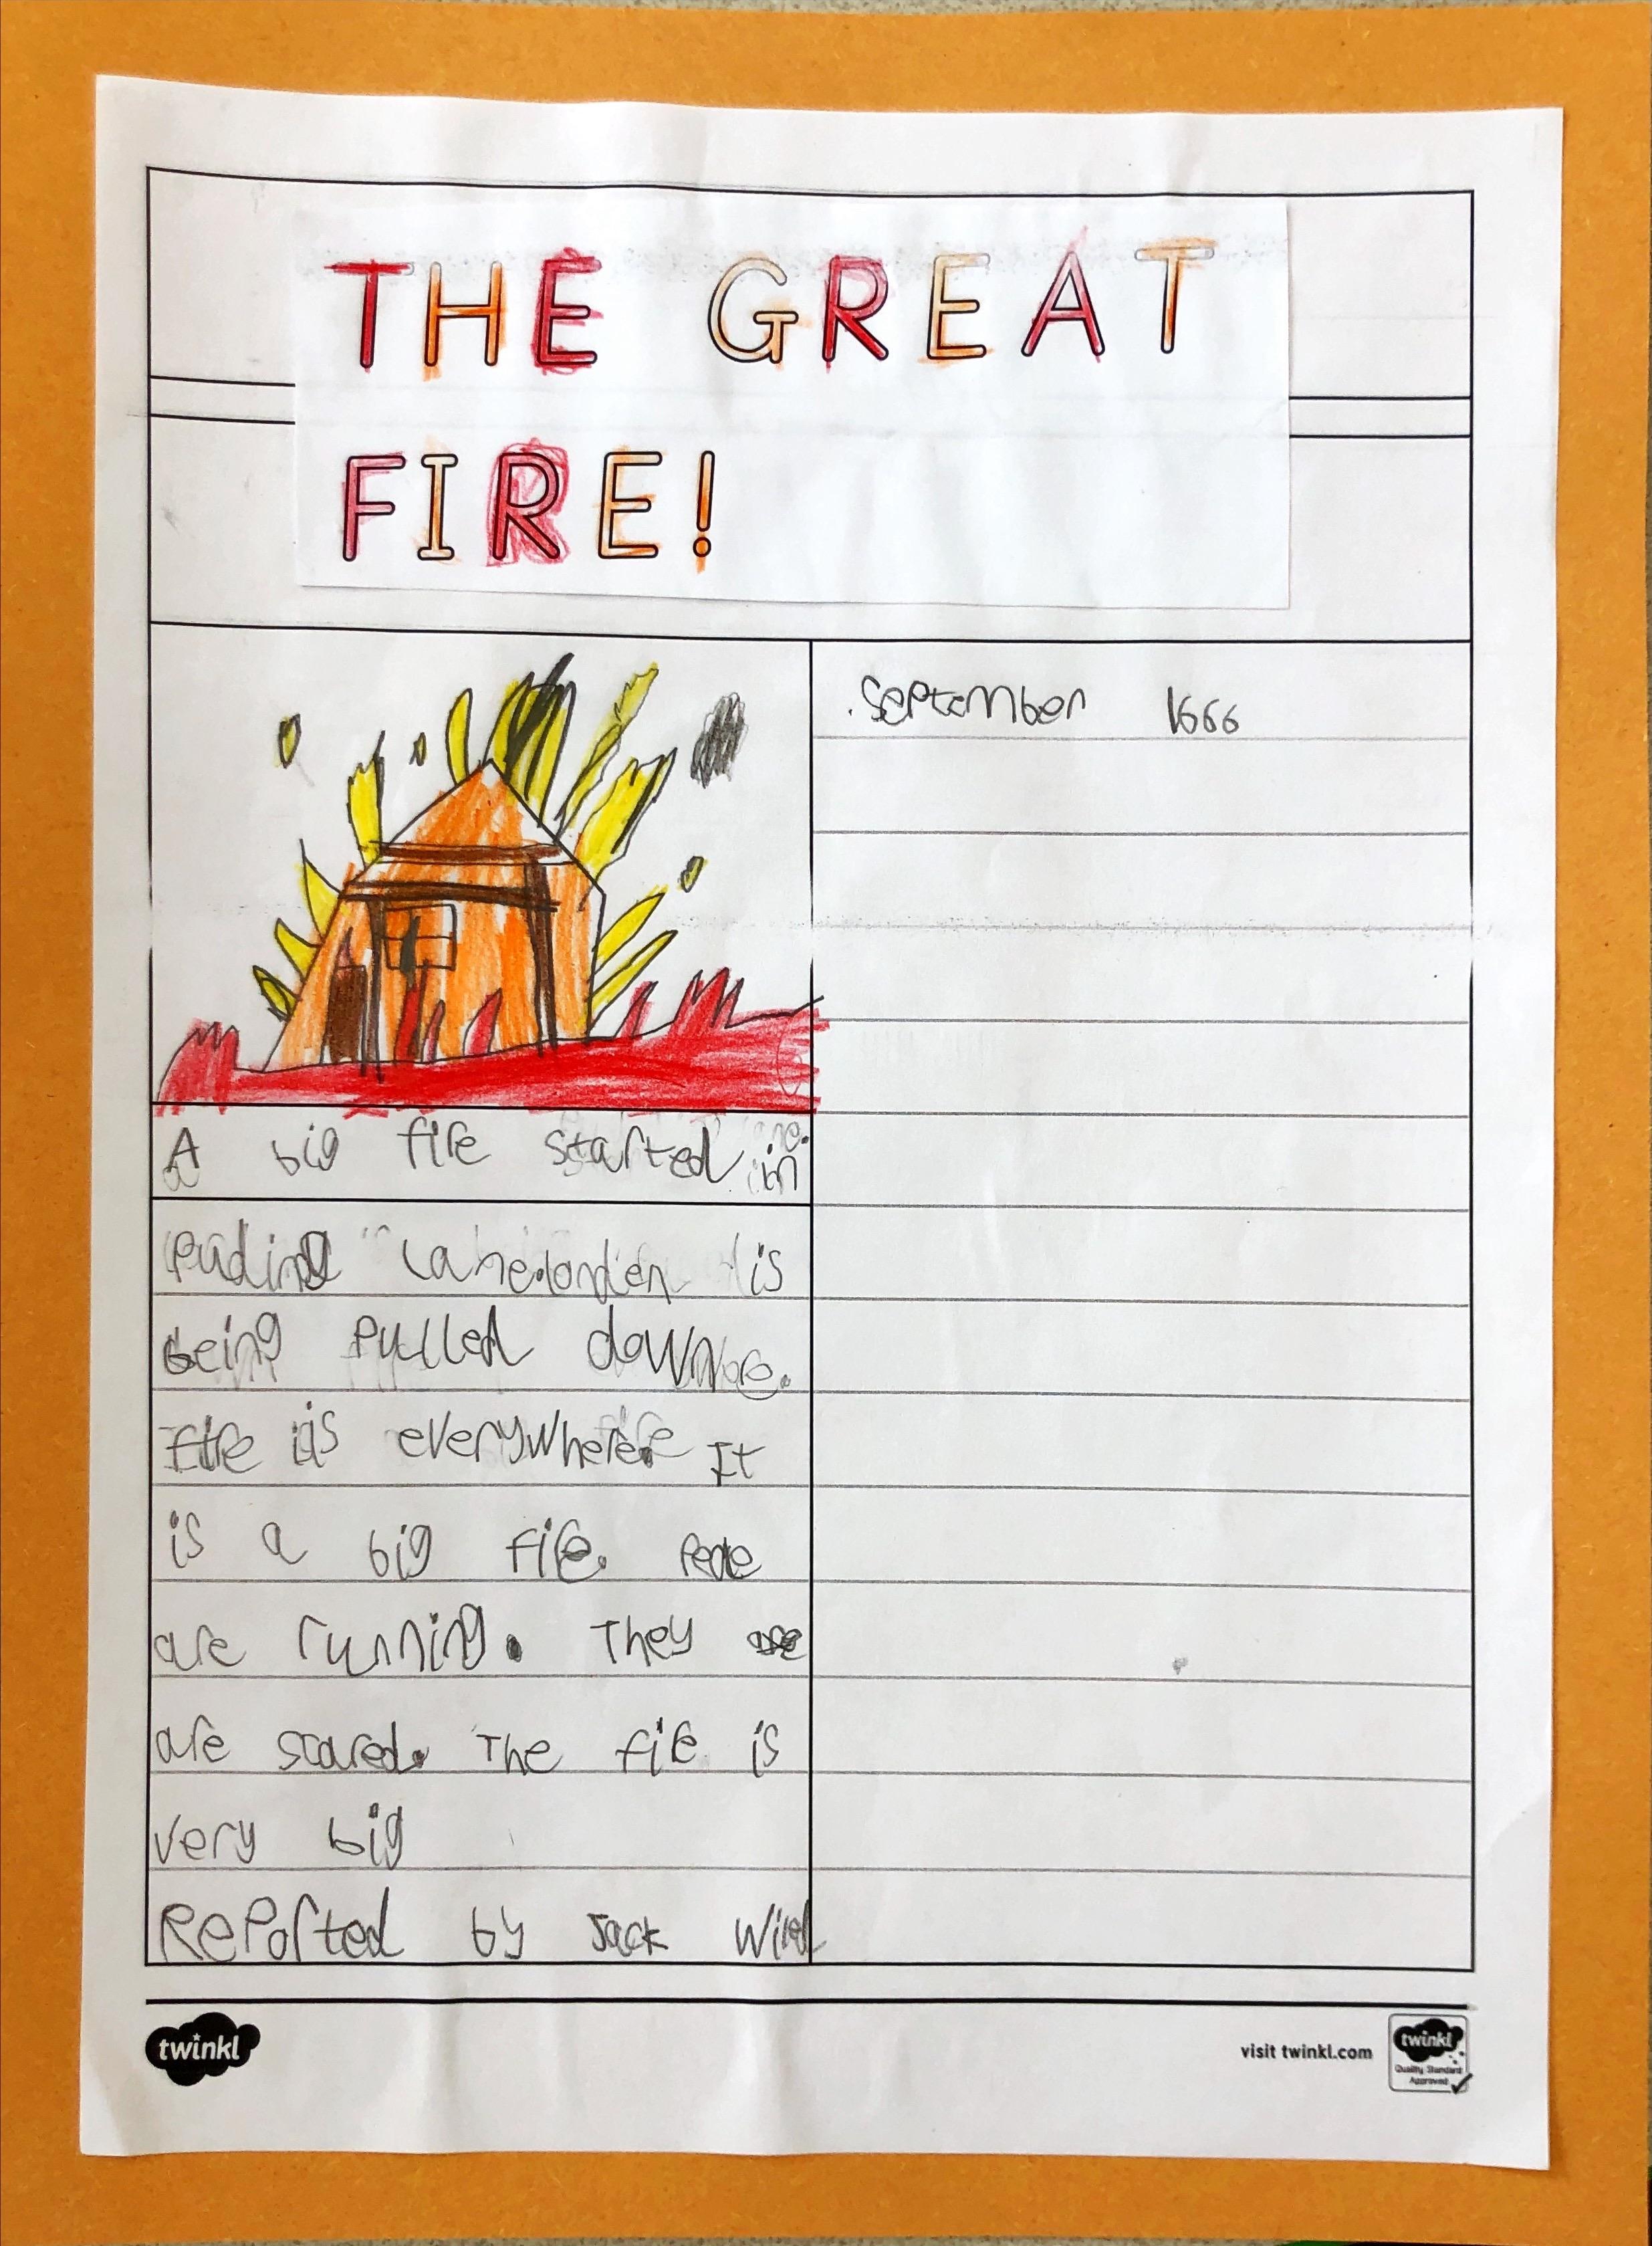 THE GREAT
FIRE!
September 1666
A big fire started in
Puding Lane. londen is
being pulled down.
Fire is everywhere. It
is a big fire. Peole
are running. They
are scared. The fire is
very big
Reported by Jack
twinkl
visit twinkl.com
twinkl
Quality Standard
Approved